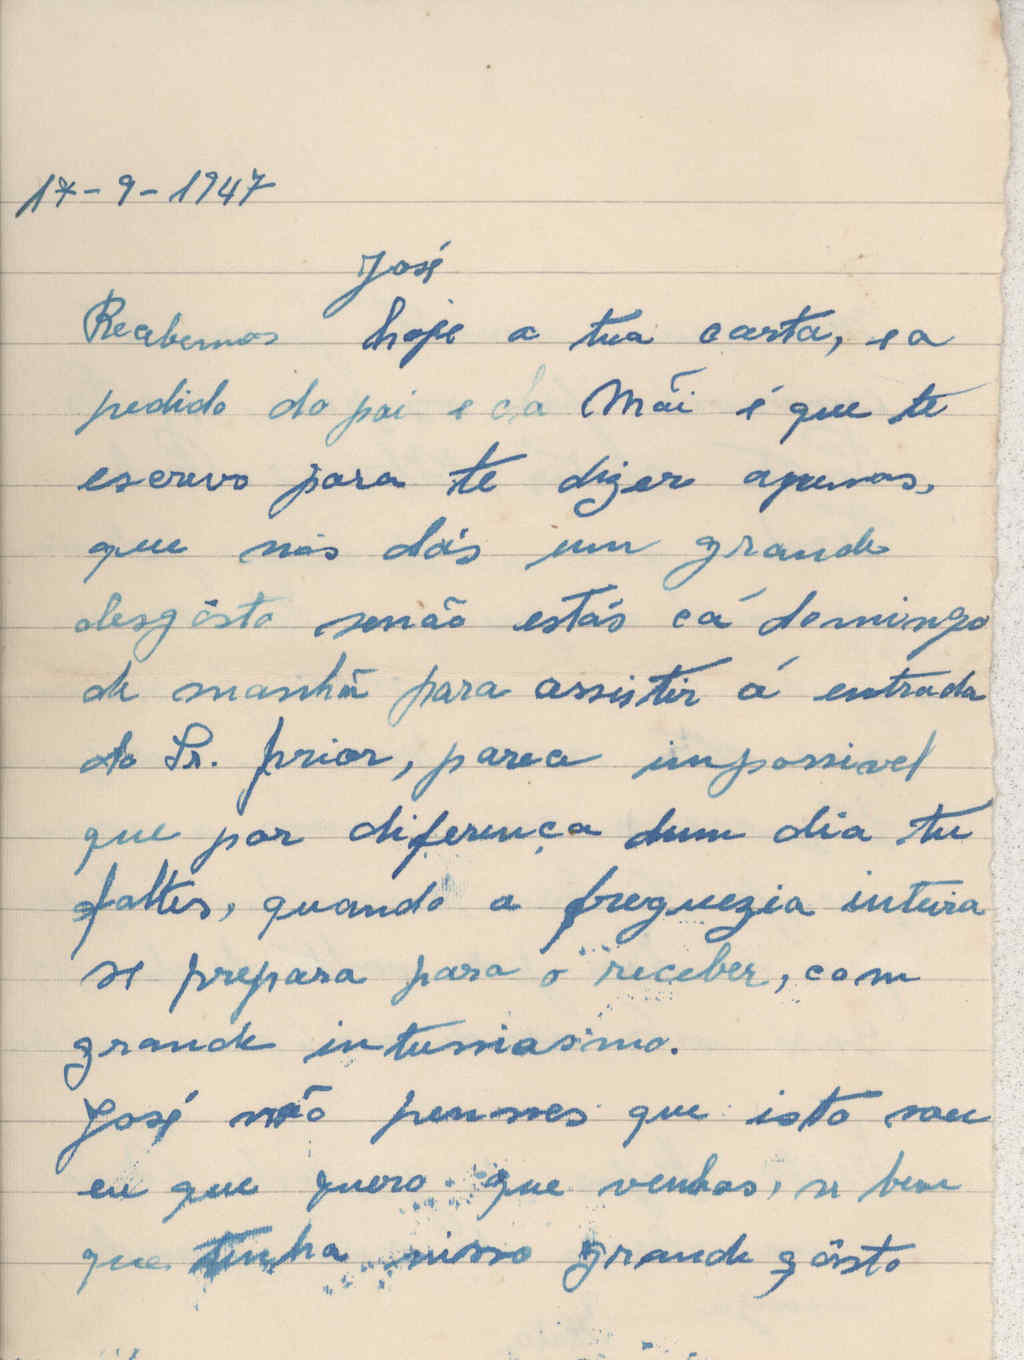 17-9-1947
José
Recebemos hoje a tua carta, e a
pedido do pai e da Mãi é que te
escrevo para te dizer apenas,
que nos dás um grande
desgôsto senão estás cá domingo
de manhã para assistir á entrada
do Sr. prior, parece impossivel
que por diferença dum dia tu
faltes, quando a freguezia inteira
se prepara para o receber, com
grande intusiasimo.
José não pensses que isto sou
eu que quero que venhas, se bem
que tenha nisso grande gôsto